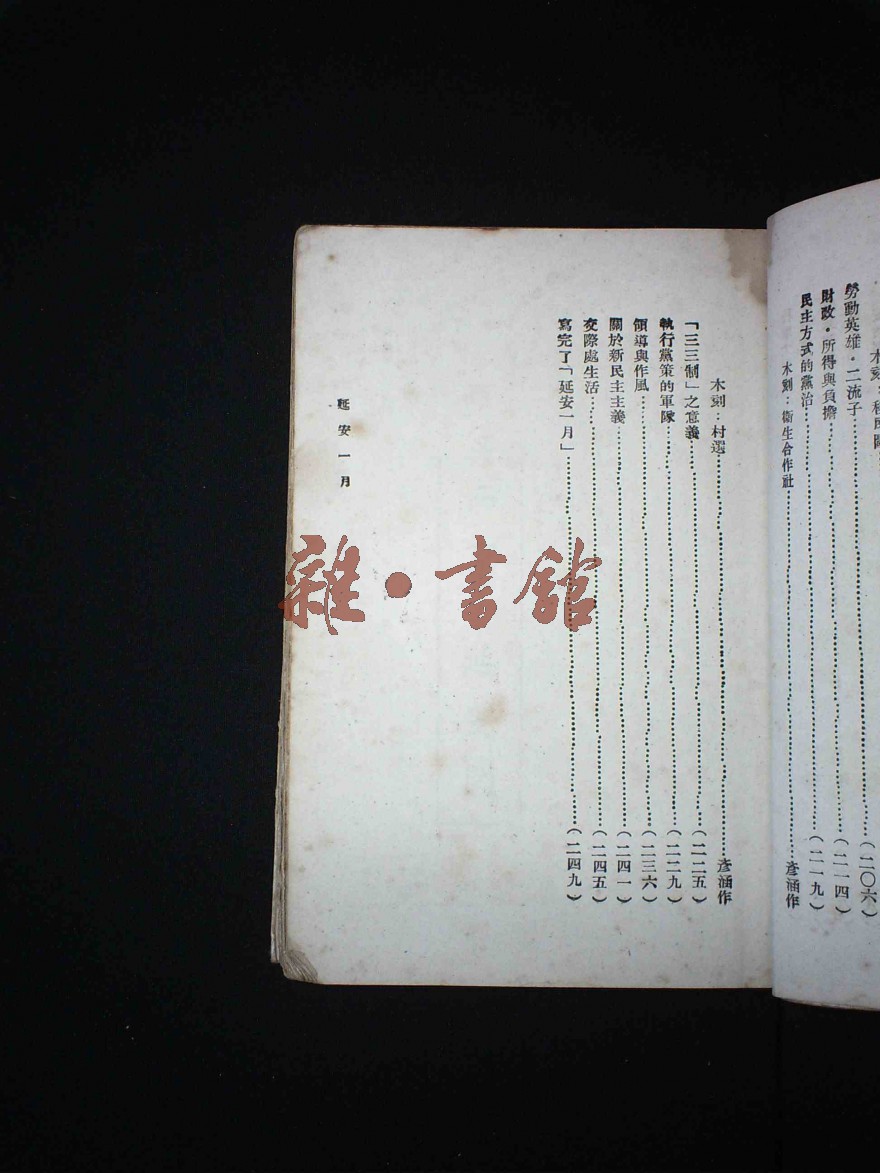 勞動英雄·二流子……（二〇六）
財政·所得與負擔……（二一四）
民主方式的黨治……（二一九）
木刻：衛生合作社……彥涵作
木刻：村選……彥涵作
「三三制」之意義……（二二五）
執行黨策的軍隊……（二二九）
領導與作風……（二三六）
關於新民主主義……（二四一）
交際處生活……（二四五）
寫完了「延安一月」……（二四九）
延安一月
雜·書館